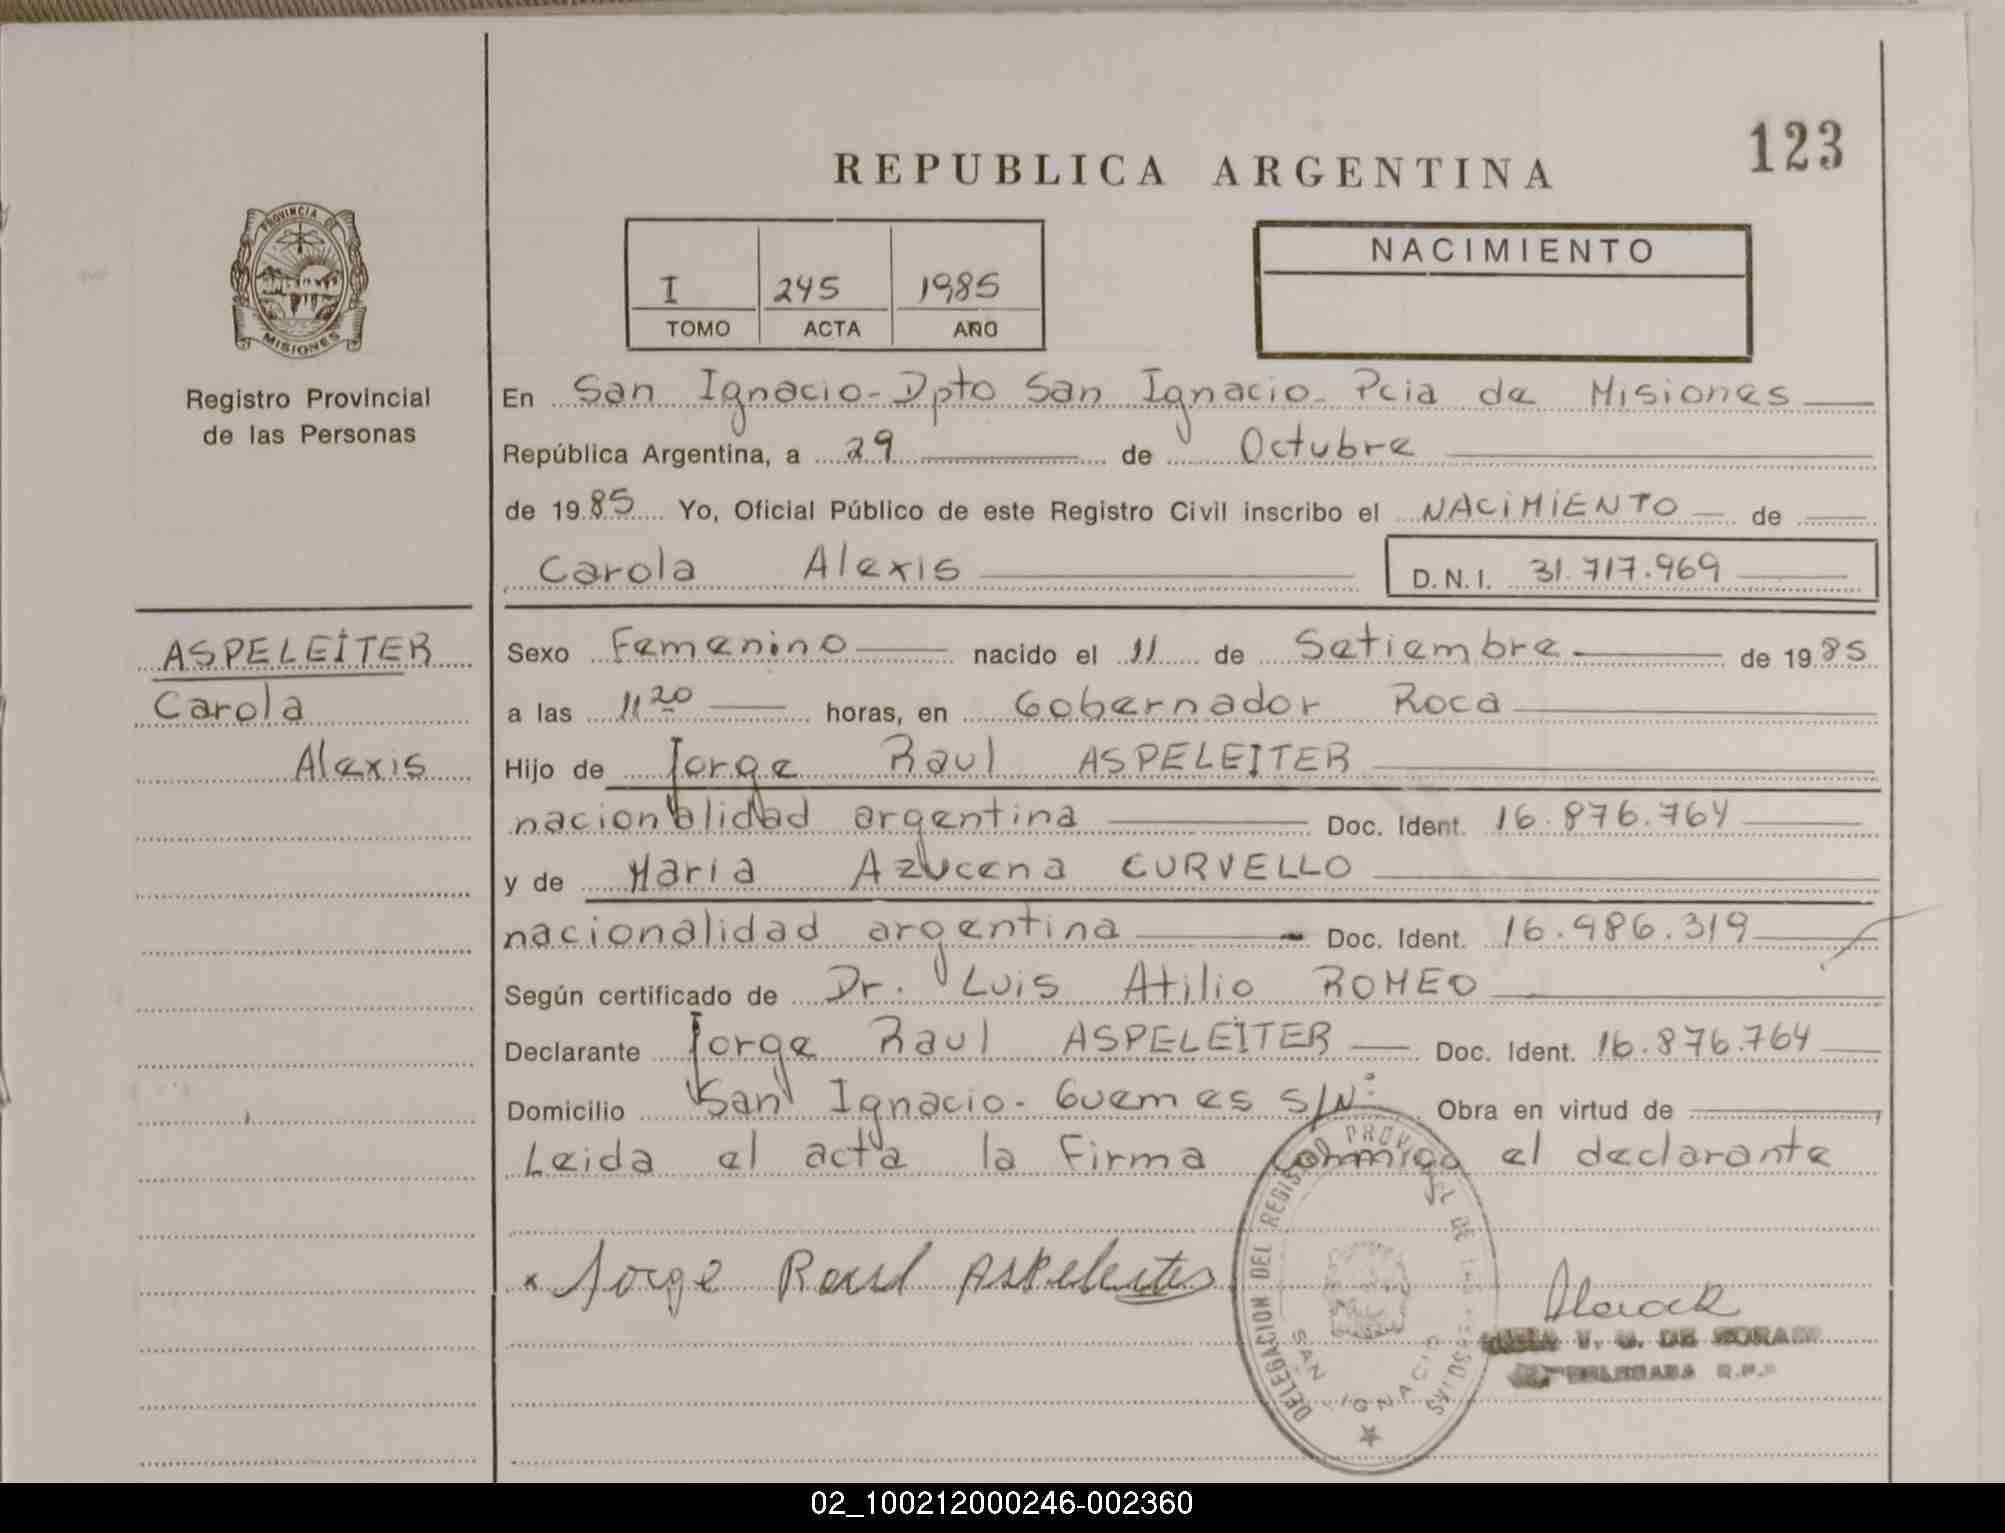 123
REPUBLICA ARGENTINA
PROVINCIA DE
MISIONES
Registro Provincial
de las Personas
I 245 1985
TOMO ACTA AÑO
NACIMIENTO
En San Ignacio - Dpto San Ignacio - Pcia de Misiones
República Argentina, a 29 de Octubre
de 1985 Yo, Oficial Público de este Registro Civil inscribo el NACIMIENTO de
Carola Alexis D.N.I. 31.717.969
ASPELEITER
Carola
Alexis
Sexo Femenino nacido el 11 de Setiembre de 1985
a las 11 20 horas, en Gobernador Roca
Hijo de Jorge Raul ASPELEITER
nacionalidad argentina Doc. Ident. 16.876.764
y de Maria Azucena CURVELLO
nacionalidad argentina Doc. Ident. 16.986.319
Según certificado de Dr. Luis Atilio ROMEO
Declarante Jorge Raul ASPELEITER Doc. Ident. 16.876.764
Domicilio San Ignacio - Guemes S/Nº Obra en virtud de
Leida el acta la Firma conmigo el declarante
x Jorge Raul Aspeleiter
DELEGACION DEL REGISTRO PROVINCIAL DE LAS PERSONAS
SAN IGNACIO
DE R.P.P
02_100212000246-002360